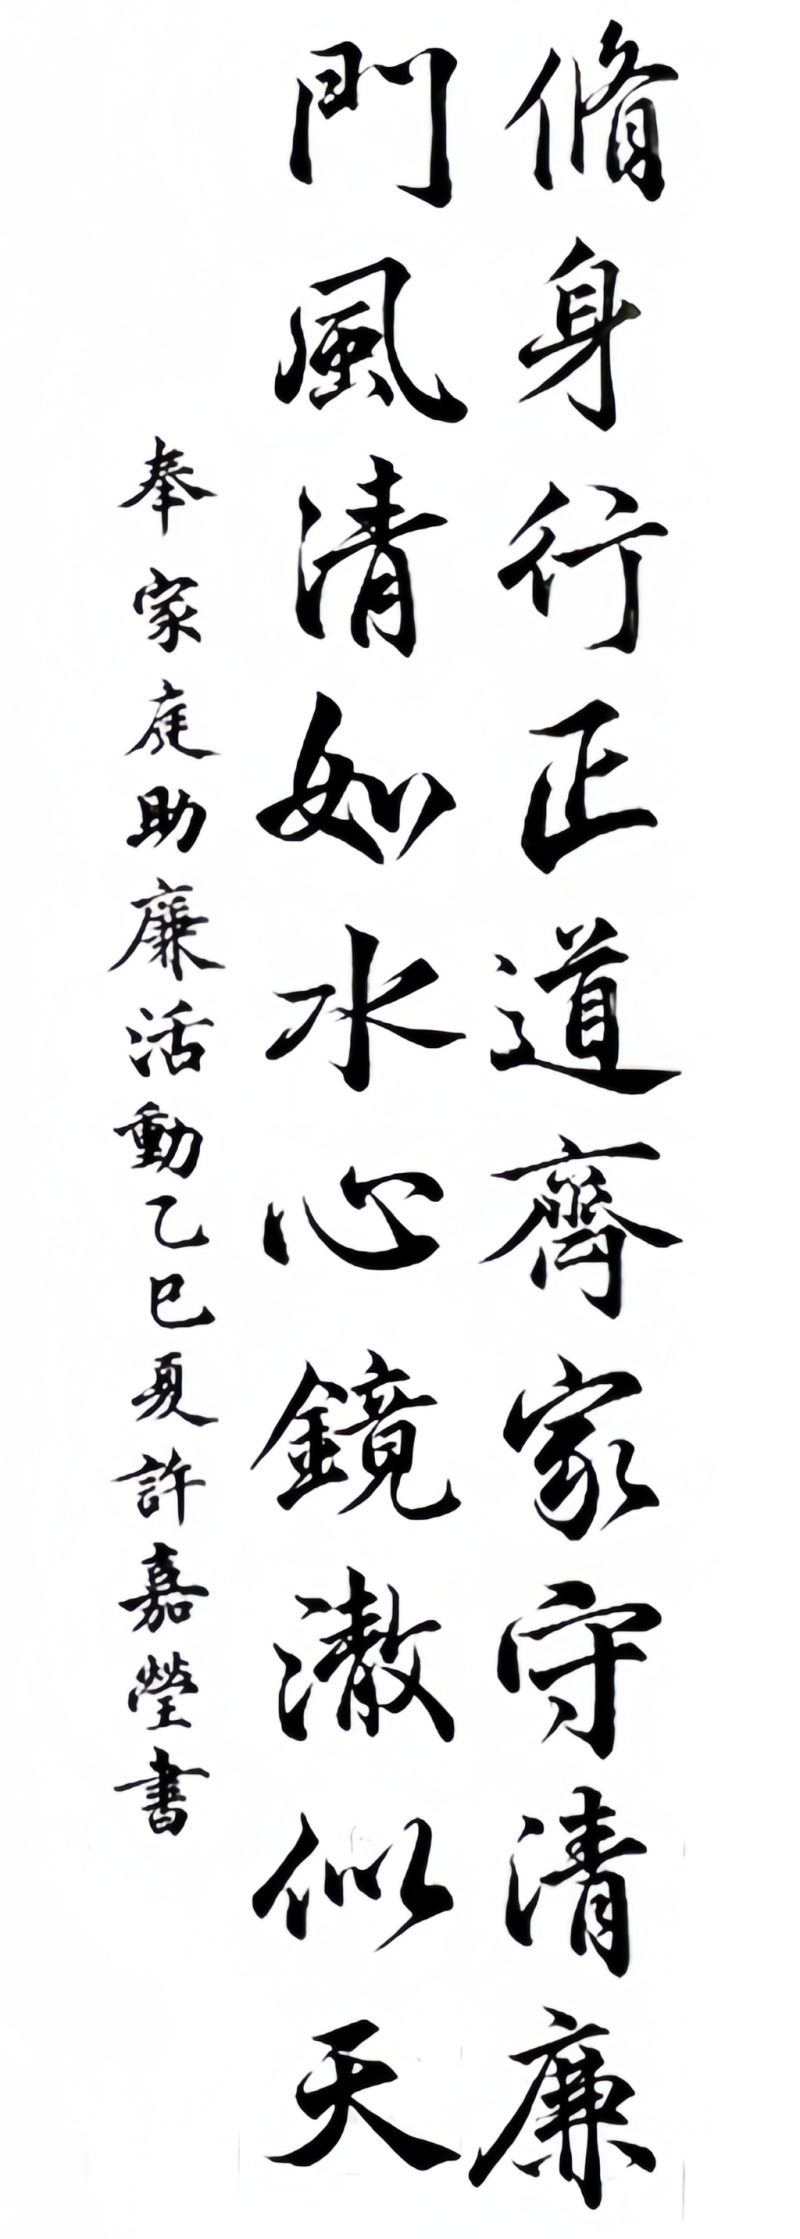 脩身行正道齊家守清廉
門風清如水心鏡澈似天
奉家庭助廉活動乙巳夏許嘉瑩書